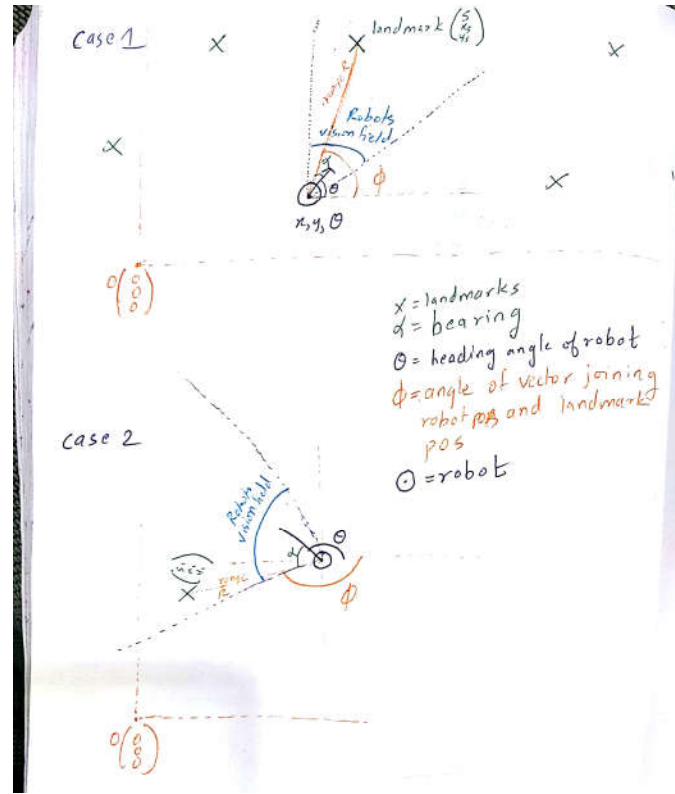 Case 1
landmark (S
xs
ys)
range R
Robots
vision field
α
θ
ϕ
x, y, θ
O(0
0
0)
X = landmarks
α = bearing
θ = heading angle of robot
ϕ = angle of vector joining
robot pos and landmark
pos
⊙ = robot
case 2
Robots
vision field
θ
α
range
R
ϕ
O(0
0
0)